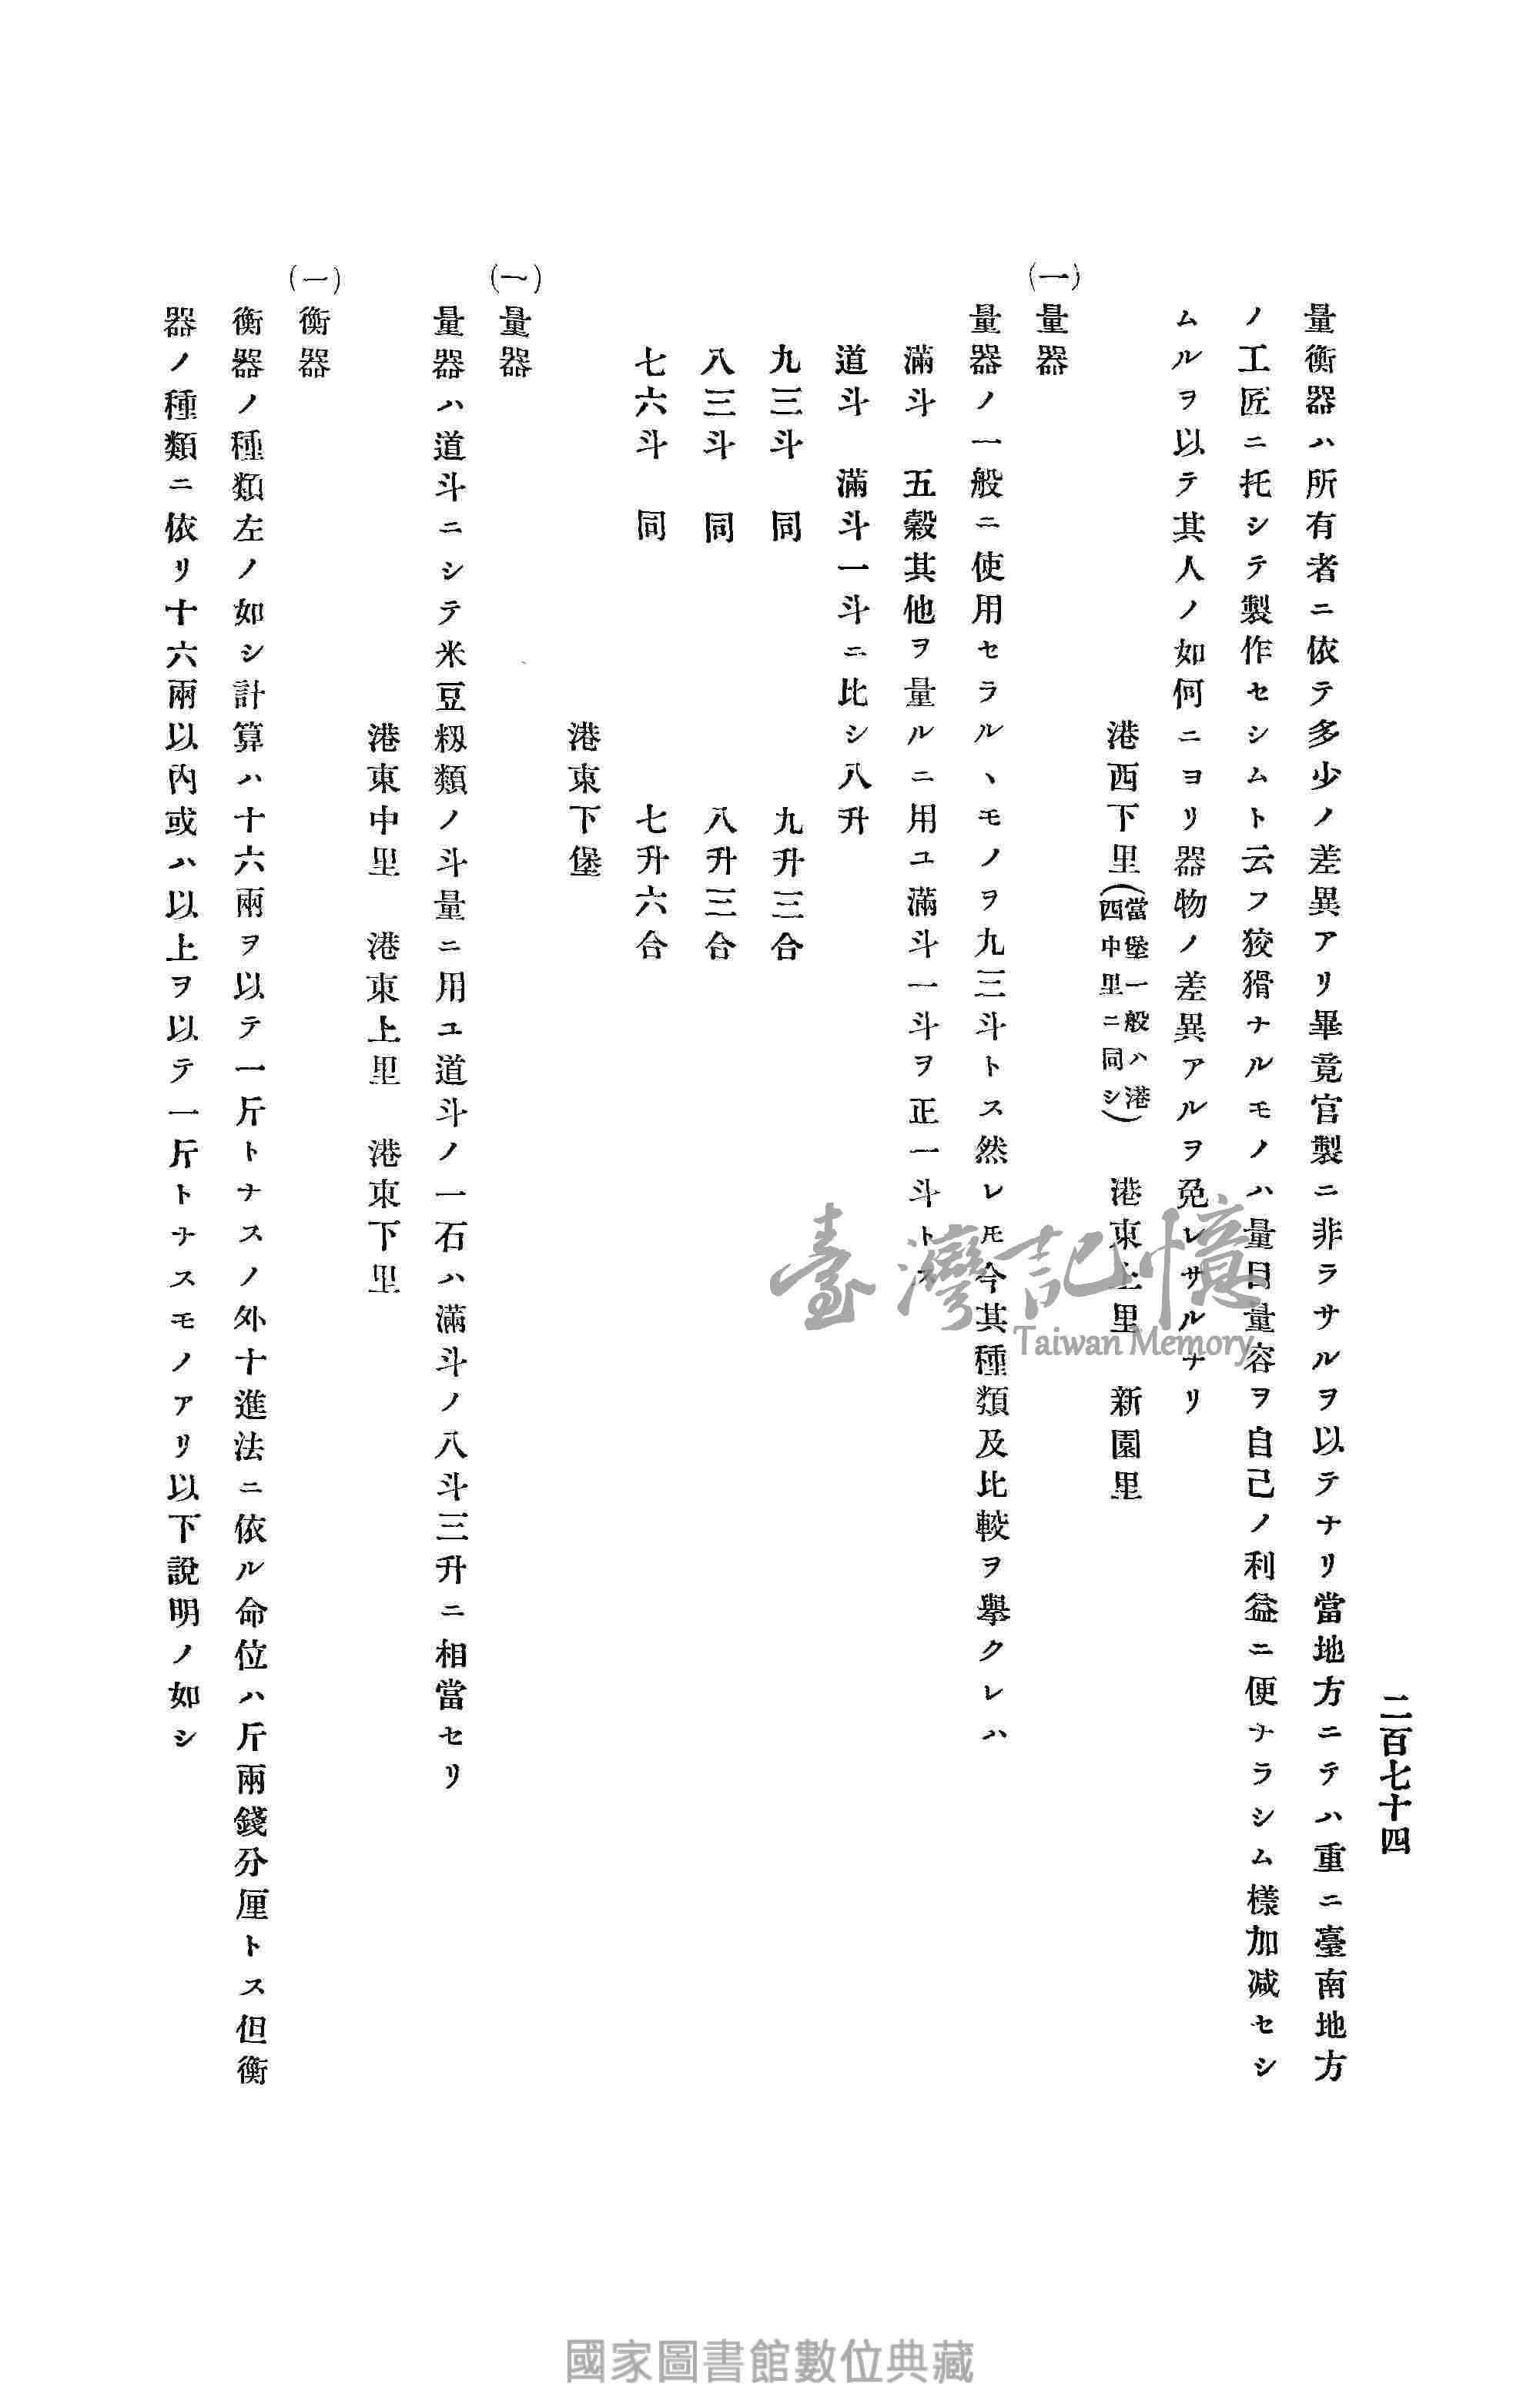 二百七十四
量衡器ハ所有者ニ依テ多少ノ差異アリ畢竟官製ニ非ラサルヲ以テナリ當地方ニテハ重ニ臺南地方
ノ工匠ニ托シテ製作セシムト云フ狡猾ナルモノハ量目量容ヲ自己ノ利益ニ便ナラシム樣加減セシ
ムルヲ以テ其人ノ如何ニヨリ器物ノ差異アルヲ免レサルナリ
港西下里(當堡一般ハ港西中里ニ同シ) 港東上里 新園里
(一)量器
量器ノ一般ニ使用セラルヽモノヲ九三斗トス然レ𪜈今其種類及比較ヲ擧クレハ
滿斗 五穀其他ヲ量ルニ用ユ滿斗一斗ヲ正一斗トス
道斗 滿斗一斗ニ比シ八升
九三斗 同 九升三合
八三斗 同 八升三合
七六斗 同 七升六合
港東下堡
(一)量器
量器ハ道斗ニシテ米豆籾類ノ斗量ニ用ユ道斗ノ一石ハ滿斗ノ八斗三升ニ相當セリ
港東中里 港東上里 港東下里
(一)衡器
衡器ノ種類左ノ如シ計算ハ十六兩ヲ以テ一斤トナスノ外十進法ニ依ル命位ハ斤兩錢分厘トス但衡
器ノ種類ニ依リ十六兩以內或ハ以上ヲ以テ一斤トナスモノアリ以下說明ノ如シ
臺灣記憶
Taiwan Memory
國家圖書館數位典藏